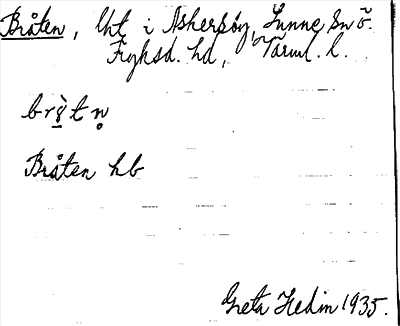 Bråten, lht i Askersby, Sunne sn ö.
Fryksd. hd, Värml. l.
brò̱tn̥
Bråten hb
Greta Hedin 1935.